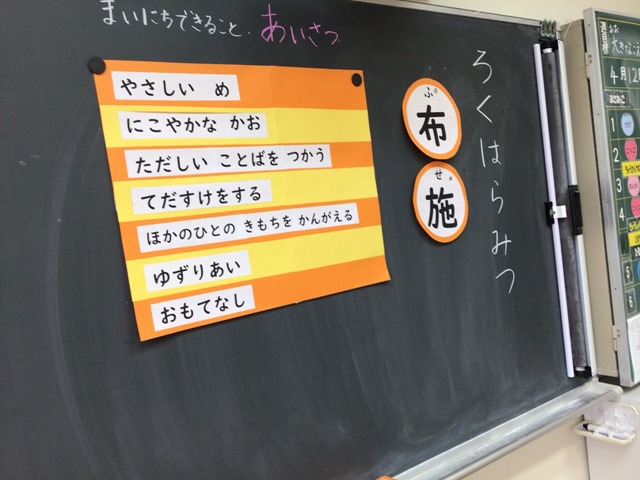 まいにちできること、あいさつ
ろくはらみつ
布施
ふ
せ
やさしい め
にこやかな かお
ただしい ことばを つかう
てだすけをする
ほかのひとの きもちを かんがえる
ゆずりあい
おもてなし
4月
1
2
3
4
5